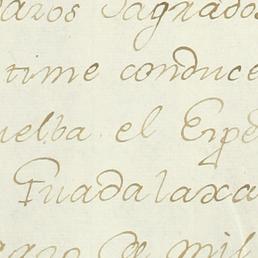 Vazos Sagrados
time conduce
uelba el Expe
Guadalaxa
Mayo de mil